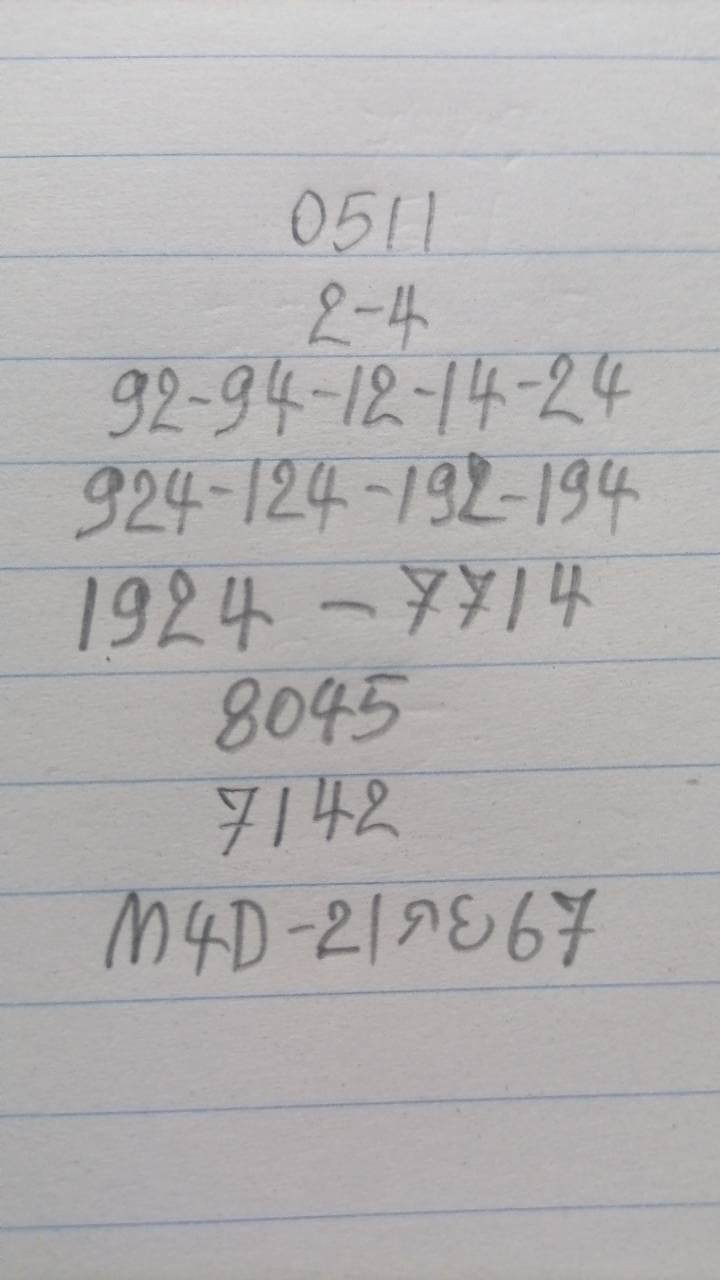 0511
2-4
92-94-12-14-24
924-124-192-194
1924 - 7714
8045
7142
M4D-21กย67